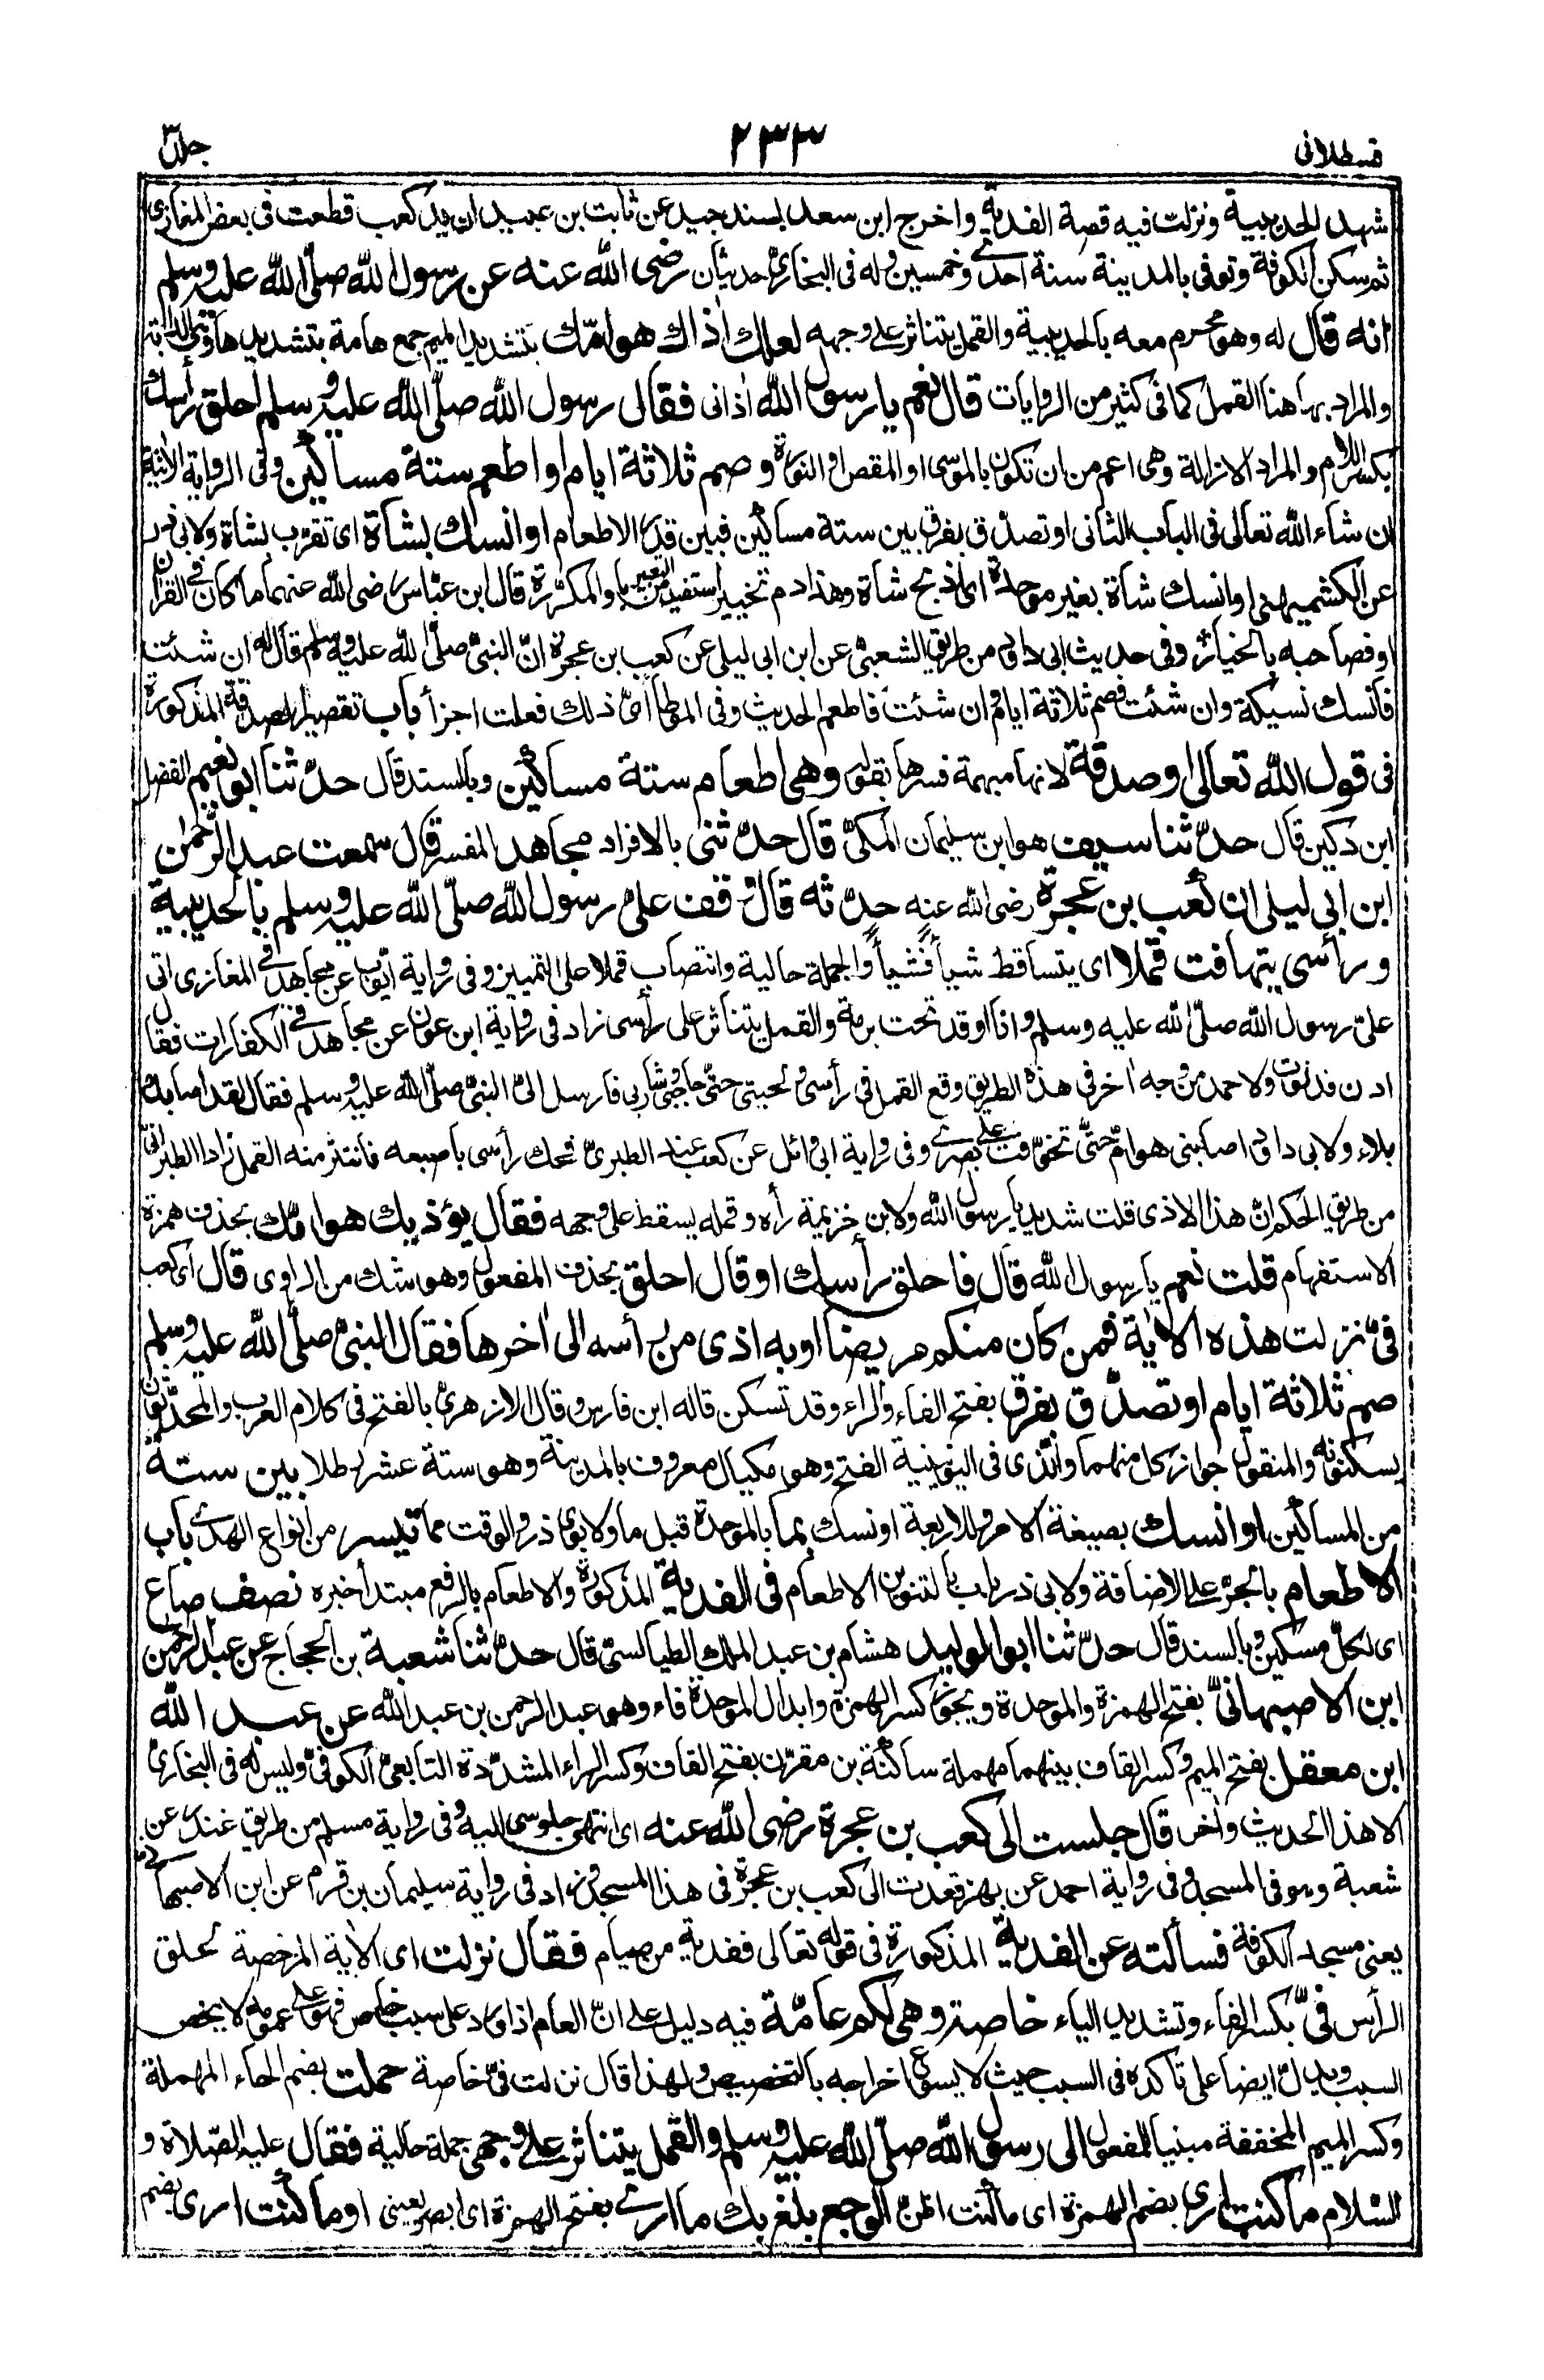 قسطلانى
٢٣٣
جلد٣
شهد الحديبية ونزلت فيه قصة الفدية واخرج ابن سعد بسند جيد عن ثابت بن عبيد ان يد كعب قطعت فى بعض المغازى
ثم سكن الكوفة وتوفى بالمدينة سنة احدى وخمسين وله فى البخارى حديثان رضى الله عنه عن رسول الله صلى الله عليه وسلم
انه قال له وهو محرم معه بالحديبية والقمل يتناثر على وجهه لعلك اٰذاك هوامّك بتشديد الميم جمع هامة بتشديدها وهى الدابة
والمراد بها هنا القمل كما فى كثير من الروايات قال نعم يا رسول الله اٰذانى فقال رسول الله صلّى الله عليه وسلم احلق رأسك
بكسر اللام والمراد الازالة وهى اعم من ان تكون بالموسى او المقص او النورة وصم ثلاثة ايام او اطعم ستة مساكين وفى الرواية الاٰتية
ان شاء الله تعالى فى الباب الثانى او تصدّق بفرق بين ستة مساكين فبين قدر الاطعام او انسك بشاة اى تقرّب بشاة ولابى ذر
عن الكشميهنى او انسك شاة بغير موحدة اى اذبح شاة وهذا دم تخيير استفيد من التعبير باو المكرّرة قال ابن عبّاس رضى الله عنهما ما كان فى القراٰن
او فصاحبه بالخيار وفى حديث ابى داود من طريق الشعبىّ عن ابن ابى ليلى عن كعب بن عجرة انّ النبىّ صلّى الله عليه وسلم قال له ان شئت
فانسك نسيكة وان شئت فصم ثلاثة ايام وان شئت فاطعم الحديث وفى الموطأ اىّ ذلك فعلت اجزأ باب تفصيل الصدقة المذكورة
فى قول الله تعالى او صدقة لانها مبهمة فسرها بقوله وهى اطعام ستة مساكين وبالسند قال حدّثنا ابو نعيم الفضل
ابن دكين قال حدّثنا سيف هو ابن سليمان المكىّ قال حدّثنى بالافراد مجاهد المفسر قال سمعت عبد الرّحمٰن
ابن ابى ليلى ان كعب بن عجرة رضى الله عنه حدّثه قال وقف علىّ رسول الله صلّى الله عليه وسلم بالحديبية
ورأسى يتهافت قملا اى يتساقط شيأ فشيأ والجملة حالية وانتصاب قملا على التمييز وفى رواية ايّوب عن مجاهد فى المغازى اتى
علىّ رسول الله صلّى الله عليه وسلم وانا اوقد تحت برمة والقمل يتناثر على رأسى زاد فى رواية ابن عون عن مجاهد فى الكفارات فقال
ادن فدنوت ولاحمد من وجه اٰخر فى هذه الطريق وقع القمل فى رأسى ولحيتى حتّى حاجبى وشاربى فارسل الىّ النبىّ صلّى الله عليه وسلم فقال لقد اصابك
بلاء ولابى داود اصابنى هوامّ حتّى تخوّفت على بصرى وفى رواية ابى وائل عن كعب عند الطبرىّ فحك رأسى باصبعه فانتثر منه القمل زاد الطبرانىّ
من طريق الحكم انّ هذا لاذى قلت شديد يا رسول الله ولابن خزيمة رأه وقمله يسقط على وجهه فقال يؤذيك هوامّك بحذف همزة
الاستفهام قلت نعم يا رسول الله قال فاحلق رأسك او قال احلق بحذف المفعول وهو شك من الراوى قال اى كعب
فىّ نزلت هذه الاٰية فمن كان منكم مريضا او به اذى من رأسه الى اٰخرها فقال النبىّ صلّى الله عليه وسلم
صم ثلاثة ايام او تصدّق بفرق بفتح الفاء والراء وقد تسكن قاله ابن فارس وقال الازهرىّ بالفتح فى كلام العرب والمحدّثون
يسكنونه والمنقول جواز كل منهما والذى فى اليونينية الفتح وهو مكيال معروف بالمدينة وهو ستة عشر رطلا بين ستة
من المساكين او انسك بصيغة الامر وللاربعة او نسك بما بالموحدة قبل ما ولابوى ذر والوقت مما تيسر من انواع الهدى باب
الاطعام بالجرّ على الاضافة ولابى ذر باب بالتنوين الاطعام فى الفدية المذكورة والاطعام بالرفع مبتدأ خبره نصف صاع
اى لكلّ مسكين وبالسند قال حدّثنا ابو الوليد هشام بن عبد الملك الطيالسىّ قال حدّثنا شعبة بن الحجاج عن عبد الرّحمٰن
ابن الاصبهانىّ بفتح الهمزة والموحدة ويجوز كسر الهمزة وابدال الموحدة فاء وهو عبد الرحمن بن عبد الله عن عبد الله
ابن معقل بفتح الميم وكسر القاف بينهما مهملة ساكنة بن مقرّن بفتح القاف وكسر الراء المشدّدة التابعىّ الكوفىّ وليس له فى البخارىّ
الا هذا الحديث واٰخر قال جلست الى كعب بن عجرة رضى الله عنه اى انتهى جلوسى اليه وفى رواية مسلم من طريق غندر عن
شعبة وهو فى المسجد وفى رواية احمد عن بهز قعدت الى كعب بن عجرة فى هذا المسجد وزاد فى رواية سليمان بن قرم عن ابن الاصبهانى
يعنى مسجد الكوفة فسألته عن الفدية المذكورة فى قوله تعالى ففدية من صيام فقال نزلت اى الاٰية المرخصة لحلق
الرأس فىّ بكسر الفاء وتشديد الياء خاصة وهى لكم عامّة فيه دليل على انّ العام اذا ورد على سبب خاص فهو على عمومه لا يخص
السبب ويدلّ ايضا على تأكده فى السبب حيث لا يسوغ اخراجه بالتخصيص ولهذا قال نزلت فىّ خاصة حملت بضم الحاء المهملة
وكسر الميم المخففة مبنيا للمفعول الى رسول الله صلّى الله عليه وسلم والقمل يتناثر على وجهى جملة حالية فقال عليه الصّلاة و
السّلام ما كنت ارى بضم الهمزة اى ما كنت اظنّ الوجع بلغ بك ما ارى بفتح الهمزة اى ابصر بعينى او ما كنت ارى بضم